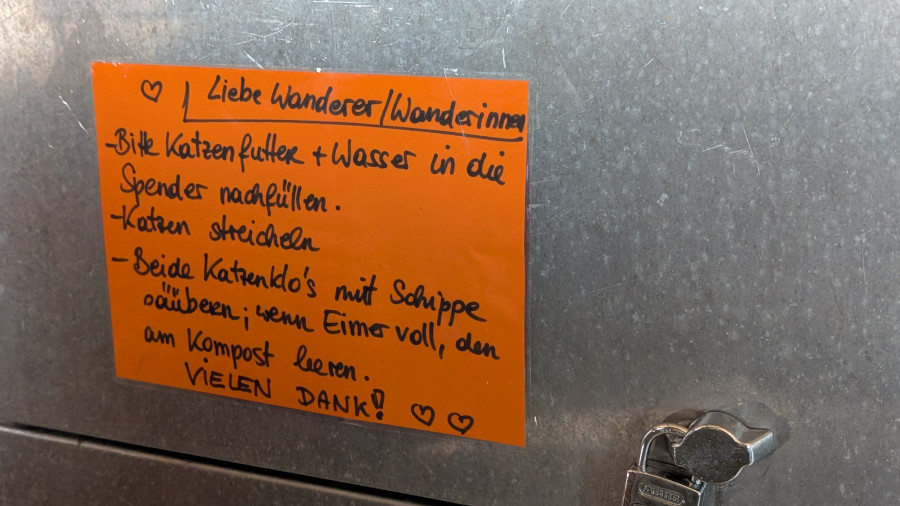 ♡ Liebe Wanderer/Wanderinnen
- Bitte Katzenfutter + Wasser in die
Spender nachfüllen.
- Katzen streicheln
- Beide Katzenklo's mit Schippe
säubern; wenn Eimer voll, den
am Kompost leeren.
VIELEN DANK! ♡ ♡